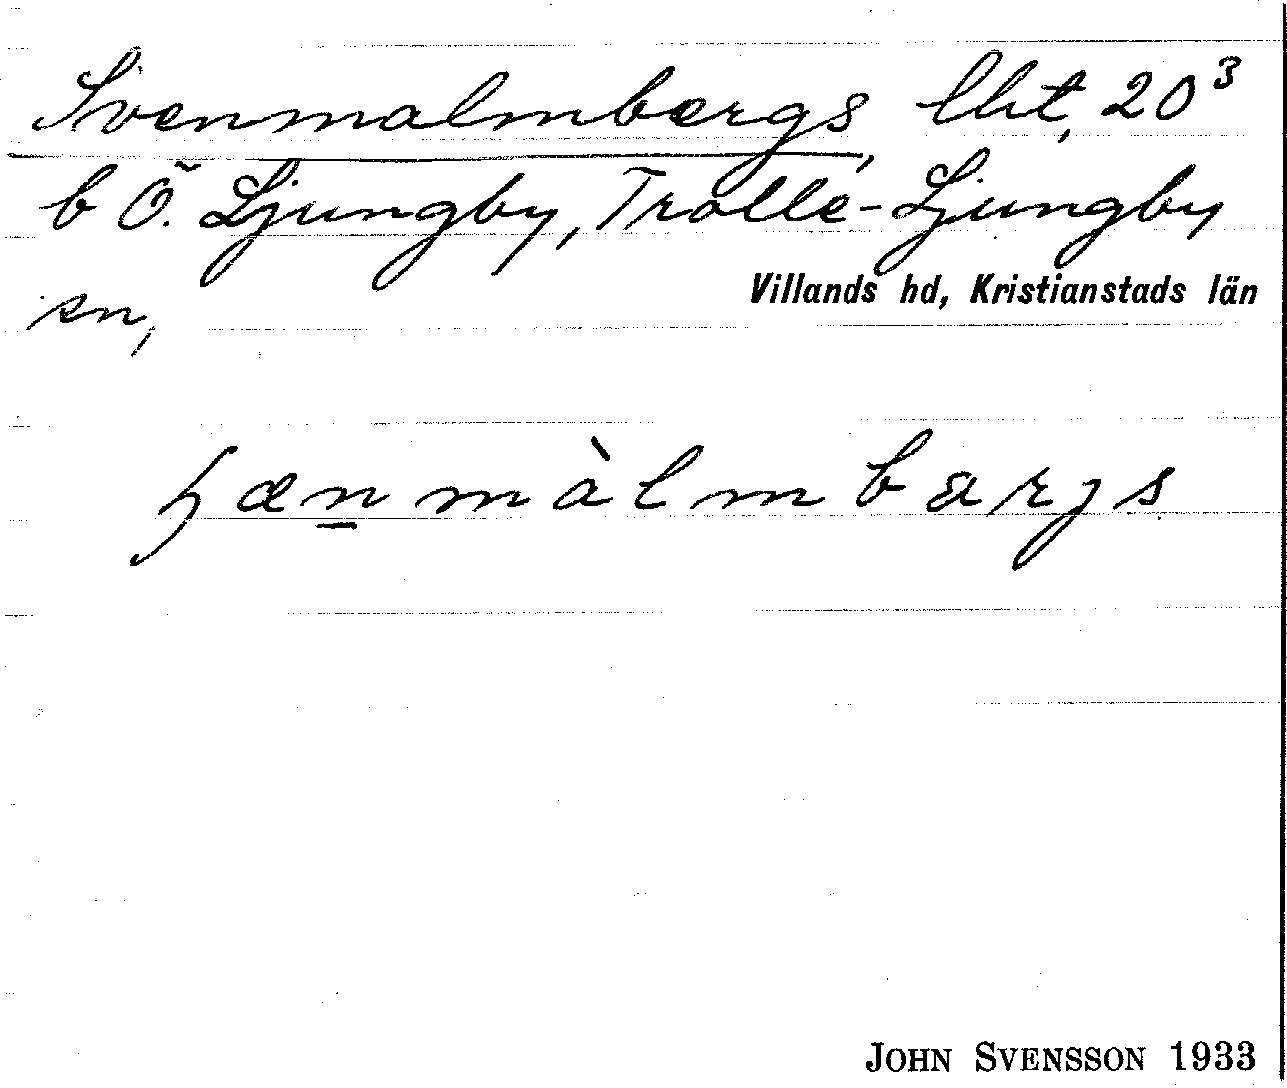 Svenmalmbergs, lht, 20³
b Ö. Ljungby, Trolle-Ljungby
sn,
Villands hd, Kristianstads län
JOHN SVENSSON 1933